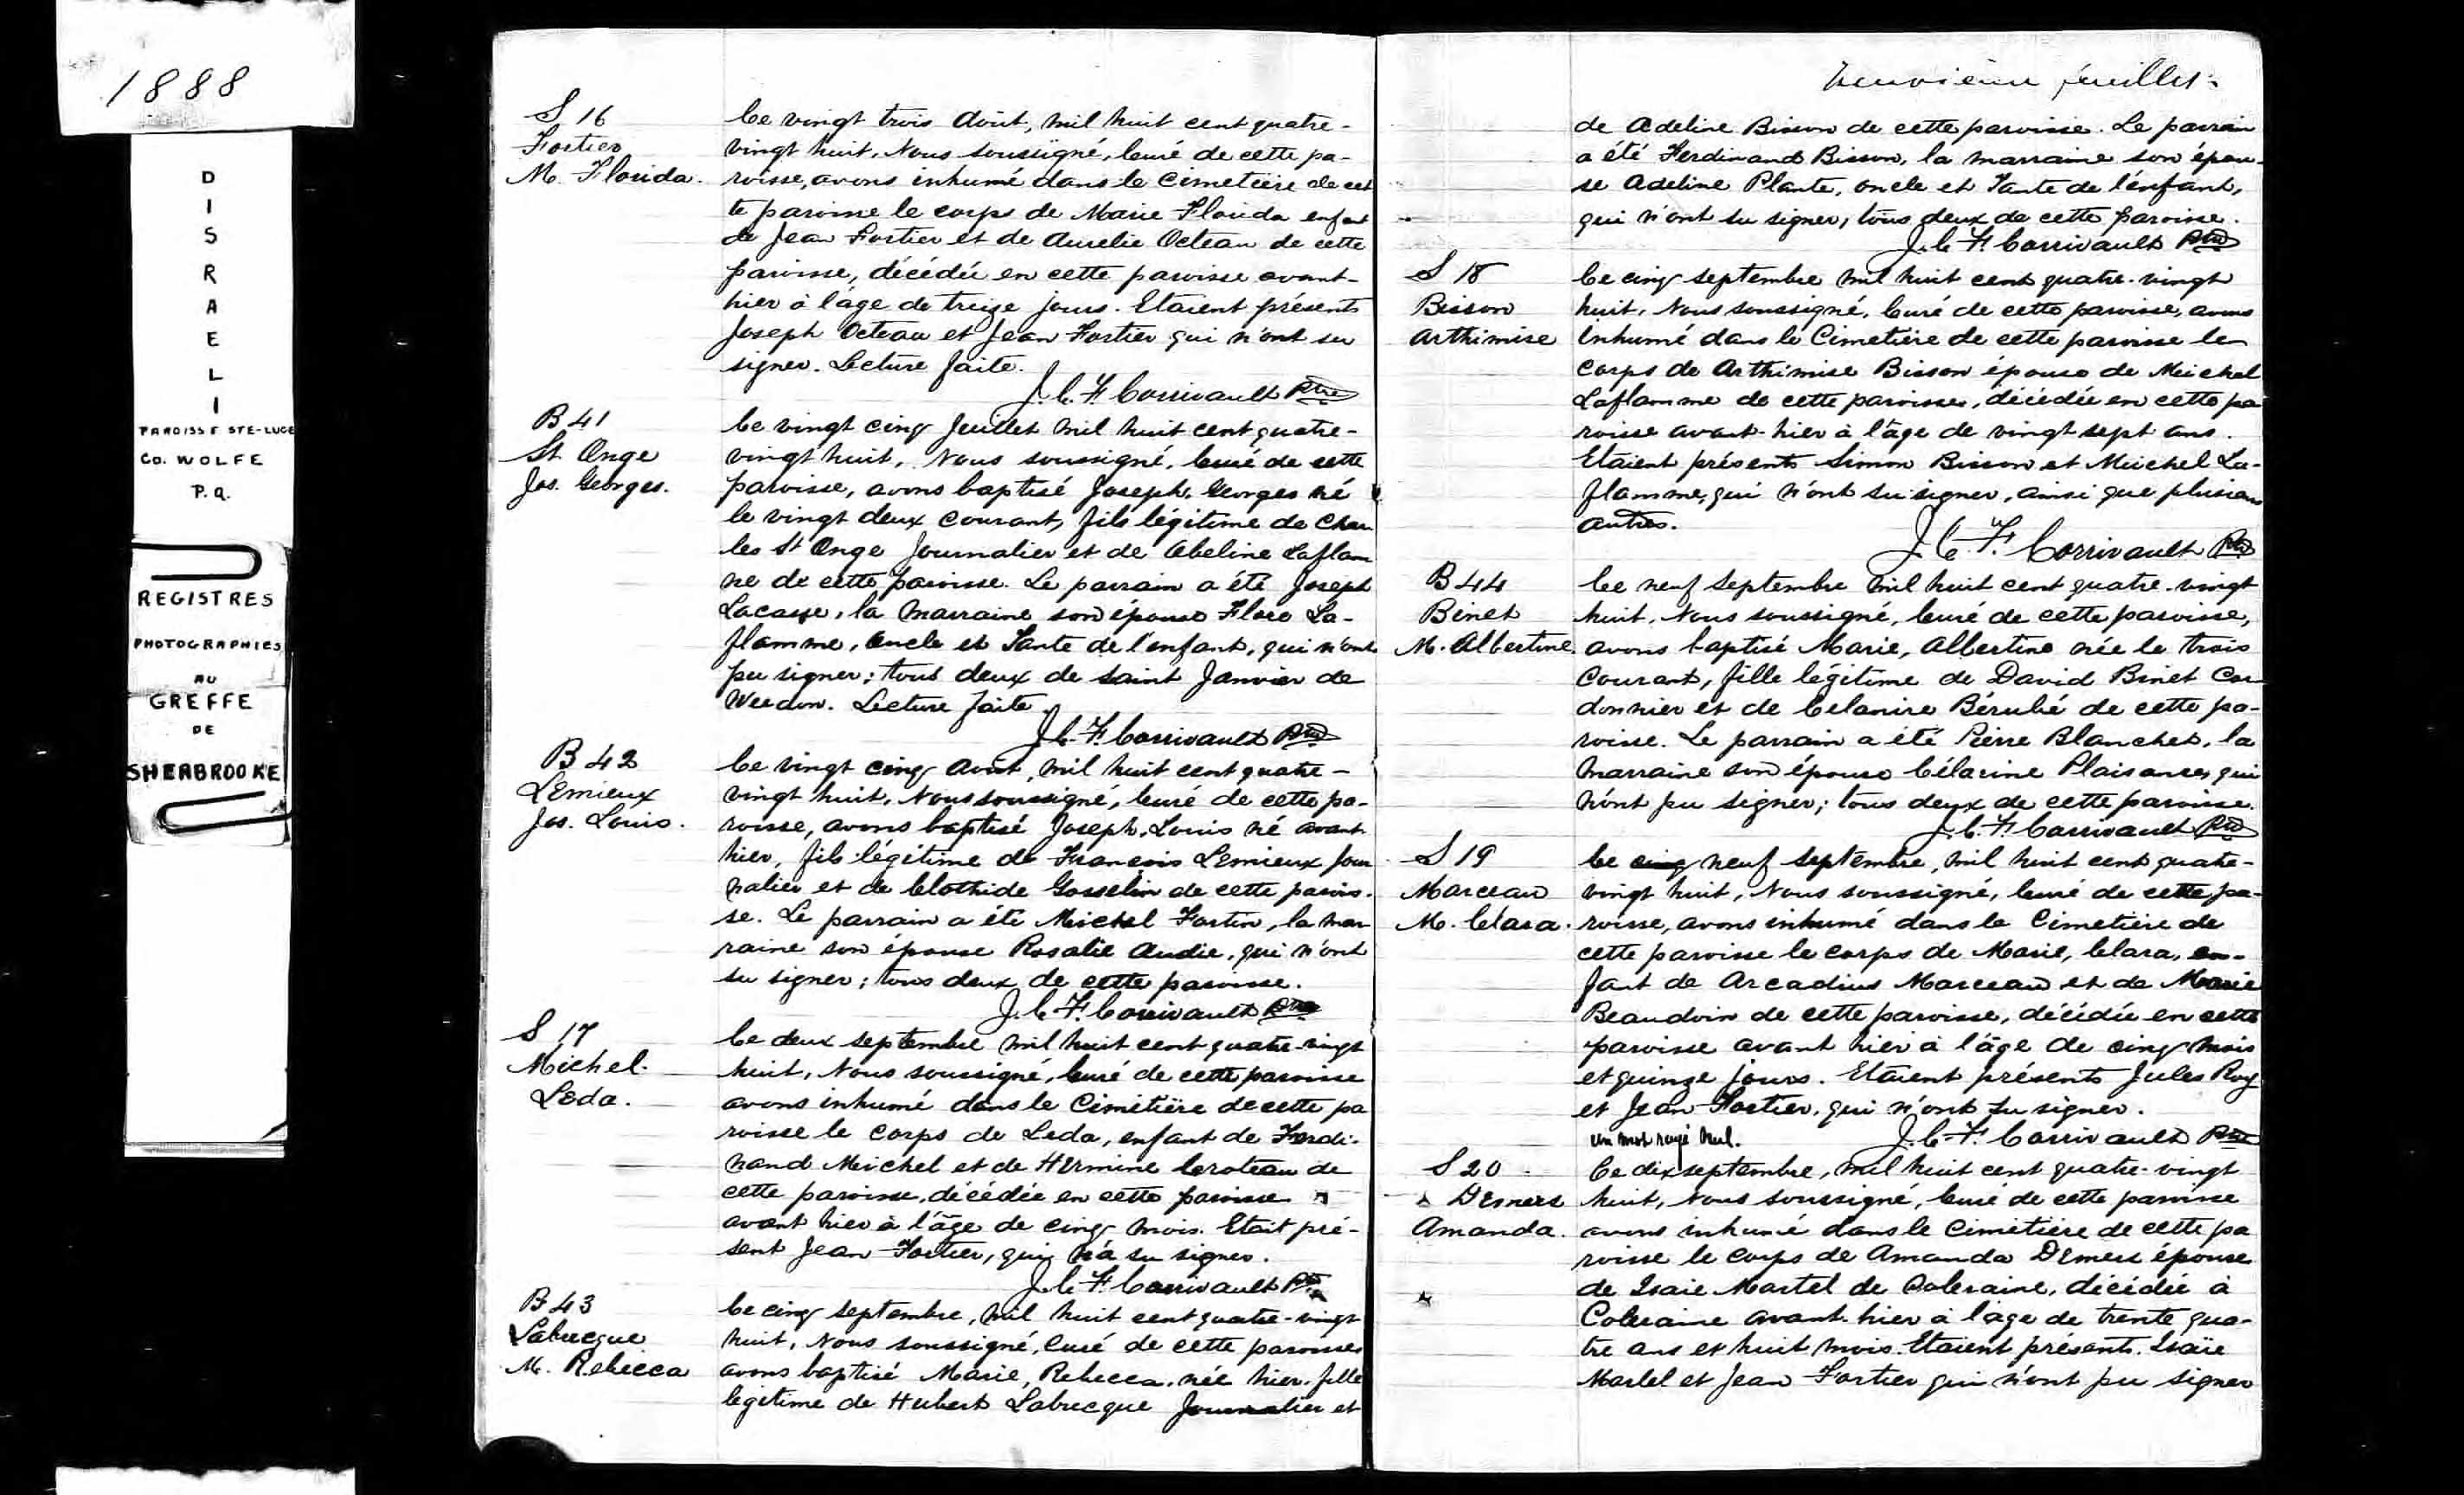 1888
DISRAELI
PAROISSE STE-LUCE
Co. WOLFE
P.Q.
REGISTRES
PHOTOGRAPHIES
AU
GREFFE
DE
SHERBROOKE
S 16
Fortier
M. Florida.
Ce vingt trois Août, mil huit cent quatre-
vingt huit, Nous soussigné, Curé de cette pa-
roisse, avons inhumé dans le Cimetière de cet
te paroisse le corps de Marie Florida enfant
de Jean Fortier et de Aurelie Octeau de cette
paroisse, décédée en cette paroisse avant-
hier à l'âge de treize jours. Etaient présents
Joseph Octeau et Jean Fortier qui n'ont su
signer. Lecture faite.
J. C. F. Corrivault Ptre
B 41
St Onge
Jos. Georges.
Ce vingt cinq Juillet mil huit cent quatre-
vingt huit, Nous soussigné, Curé de cette
paroisse, avons baptisé Joseph, Georges né
le vingt deux courant, fils légitime de Char
les St Onge Journalier et de Abeline Laflam
me de cette paroisse. Le parrain a été Joseph
Lacasse, la marraine son épouse Flore La-
flamme, Oncle et Tante de l'enfant, qui n'ont
pu signer; tous deux de saint Janvier de
Weedon. Lecture faite.
J. C. F. Corrivault Ptre
B 42
LEmieux
Jos. Louis.
Ce vingt cinq Août, mil huit cent quatre-
vingt huit, Nous soussigné, Curé de cette pa-
roisse, avons baptisé Joseph, Louis né avant
hier, fils légitime de François LEmieux Jour
nalier et de Clothide Gosselin de cette parois-
se. Le parrain a été Michel Fortin, la mar
raine son épouse Rosalie Audie, qui n'ont
su signer; tous deux de cette paroisse.
J. C. F. Corrivault Ptre
S 17
Michel
Leda.
Ce deux septembre mil huit cent quatre-vingt
huit, Nous soussigné, Curé de cette paroisse
avons inhumé dans le Cimétière de cette pa
roisse le corps de Leda, enfant de Ferdi-
nand Michel et de HErmine Croteau de
cette paroisse, décédée en cette paroisse
avant hier à l'âge de cinq mois. Etait pré-
sent Jean Fortier, qui n'a su signer.
J. C. F. Corrivault Ptre
B 43
Labrecque
M. Rebecca
Ce cinq septembre, mil huit cent quatre-vingt
huit, Nous soussigné, Curé de cette paroisse
avons baptisé Marie, Rebecca, née hier, fille
legitime de Hubert Labrecque Journalier et
feuillet.
de Adeline Bisson de cette paroisse. Le parrain
a été Ferdinand Bisson, la marraine son épou-
se Adeline Plante, oncle et Tante de l'enfant,
qui n'ont su signer, tous deux de cette paroisse.
J. C. F. Corrivault Ptre
S 18
Bisson
Arthimise
Ce cinq septembre mil huit cent quatre-vingt
huit, Nous soussigné, Curé de cette paroisse, avons
inhumé dans le Cimetière de cette paroisse le
corps de Arthimise Bisson épouse de Michel
Laflamme de cette paroisse, décédée en cette pa
roisse avant-hier à l'âge de vingt sept ans.
Etaient présents Simon Bisson et Michel La-
flamme, qui n'ont su signer, ainsi que plusieurs
autres.
J. C. F. Corrivault Ptre
B 44
Binet
M. Albertine
Ce neuf septembre mil huit cent quatre-vingt
huit, Nous soussigné, Curé de cette paroisse,
avons baptisé Marie, Albertine née le trois
courant, fille légitime de David Binet Cor
donnier et de Celanire Bérubé de cette pa-
roisse. Le parrain a été Pierre Blanchet, la
marraine son épouse Célarine Plaisance, qui
n'ont pu signer; tous deux de cette paroisse.
J. C. F. Corrivault Ptre
S 19
Marceau
M. Clara.
Ce cinq neuf septembre, mil huit cent quatre-
vingt huit, Nous soussigné, Curé de cette pa-
roisse, avons inhumé dans le Cimetière de
cette paroisse le corps de Marie, Clara, en-
fant de Arcadius Marceau et de Marie
Beaudoin de cette paroisse, décédée en cette
paroisse avant hier à l'âge de cinq mois
et quinze jours. Etaient présents Jules Roy
et Jean Fortier, qui n'ont su signer.
un mot rayé nul.
J. C. F. Corrivault Ptre
S 20
DEmers
Amanda.
Ce dix septembre, mil huit cent quatre-vingt
huit, Nous soussigné, Curé de cette paroisse
avons inhumé dans le cimetière de cette pa
roisse le corps de Amanda DEmers épouse
de Isaie Martel de Coleraine, décédée à
Coleraine avant-hier à l'âge de trente qua-
tre ans et huit mois. Etaient présents. Isaïe
Martel et Jean Fortier qui n'ont pu signer